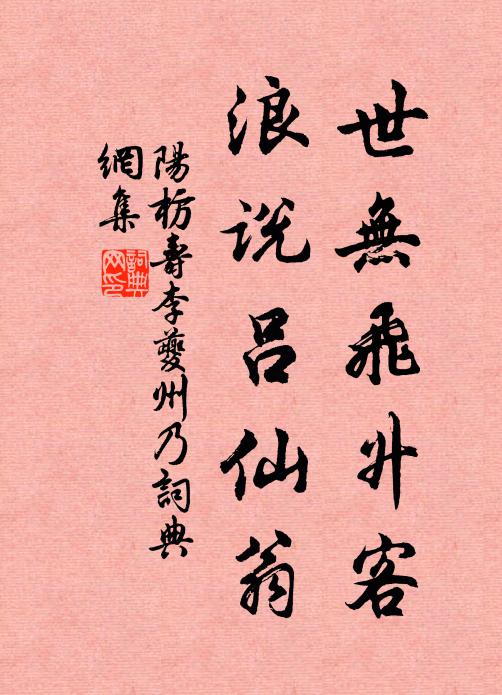 世無飛升客
浪說呂仙翁
陽枋壽李夔州乃詞典
網集
詞典網印